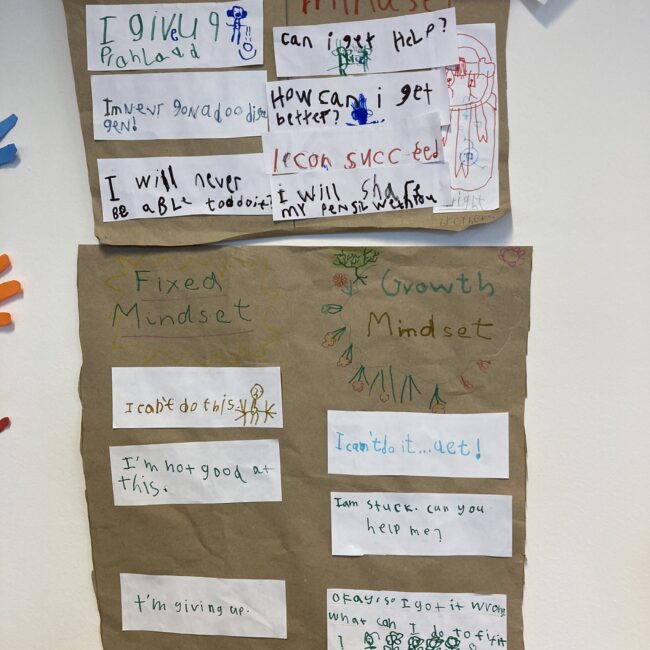 mindset
I giveu 9
Can i get HeLP?
Im Never gon a doo
gen!
How can i get
better?
I can succ-eed
I will never
BE aBLe
i will share
MY
right
brothers
Fixed
Mindset
Growth
Mindset
I can't do this
I'm not good at
this.
I'm giving up.
I can't do it...uet!
I am stuck. can you
help me?
okay, so I got it wrong
what can I do to fix it